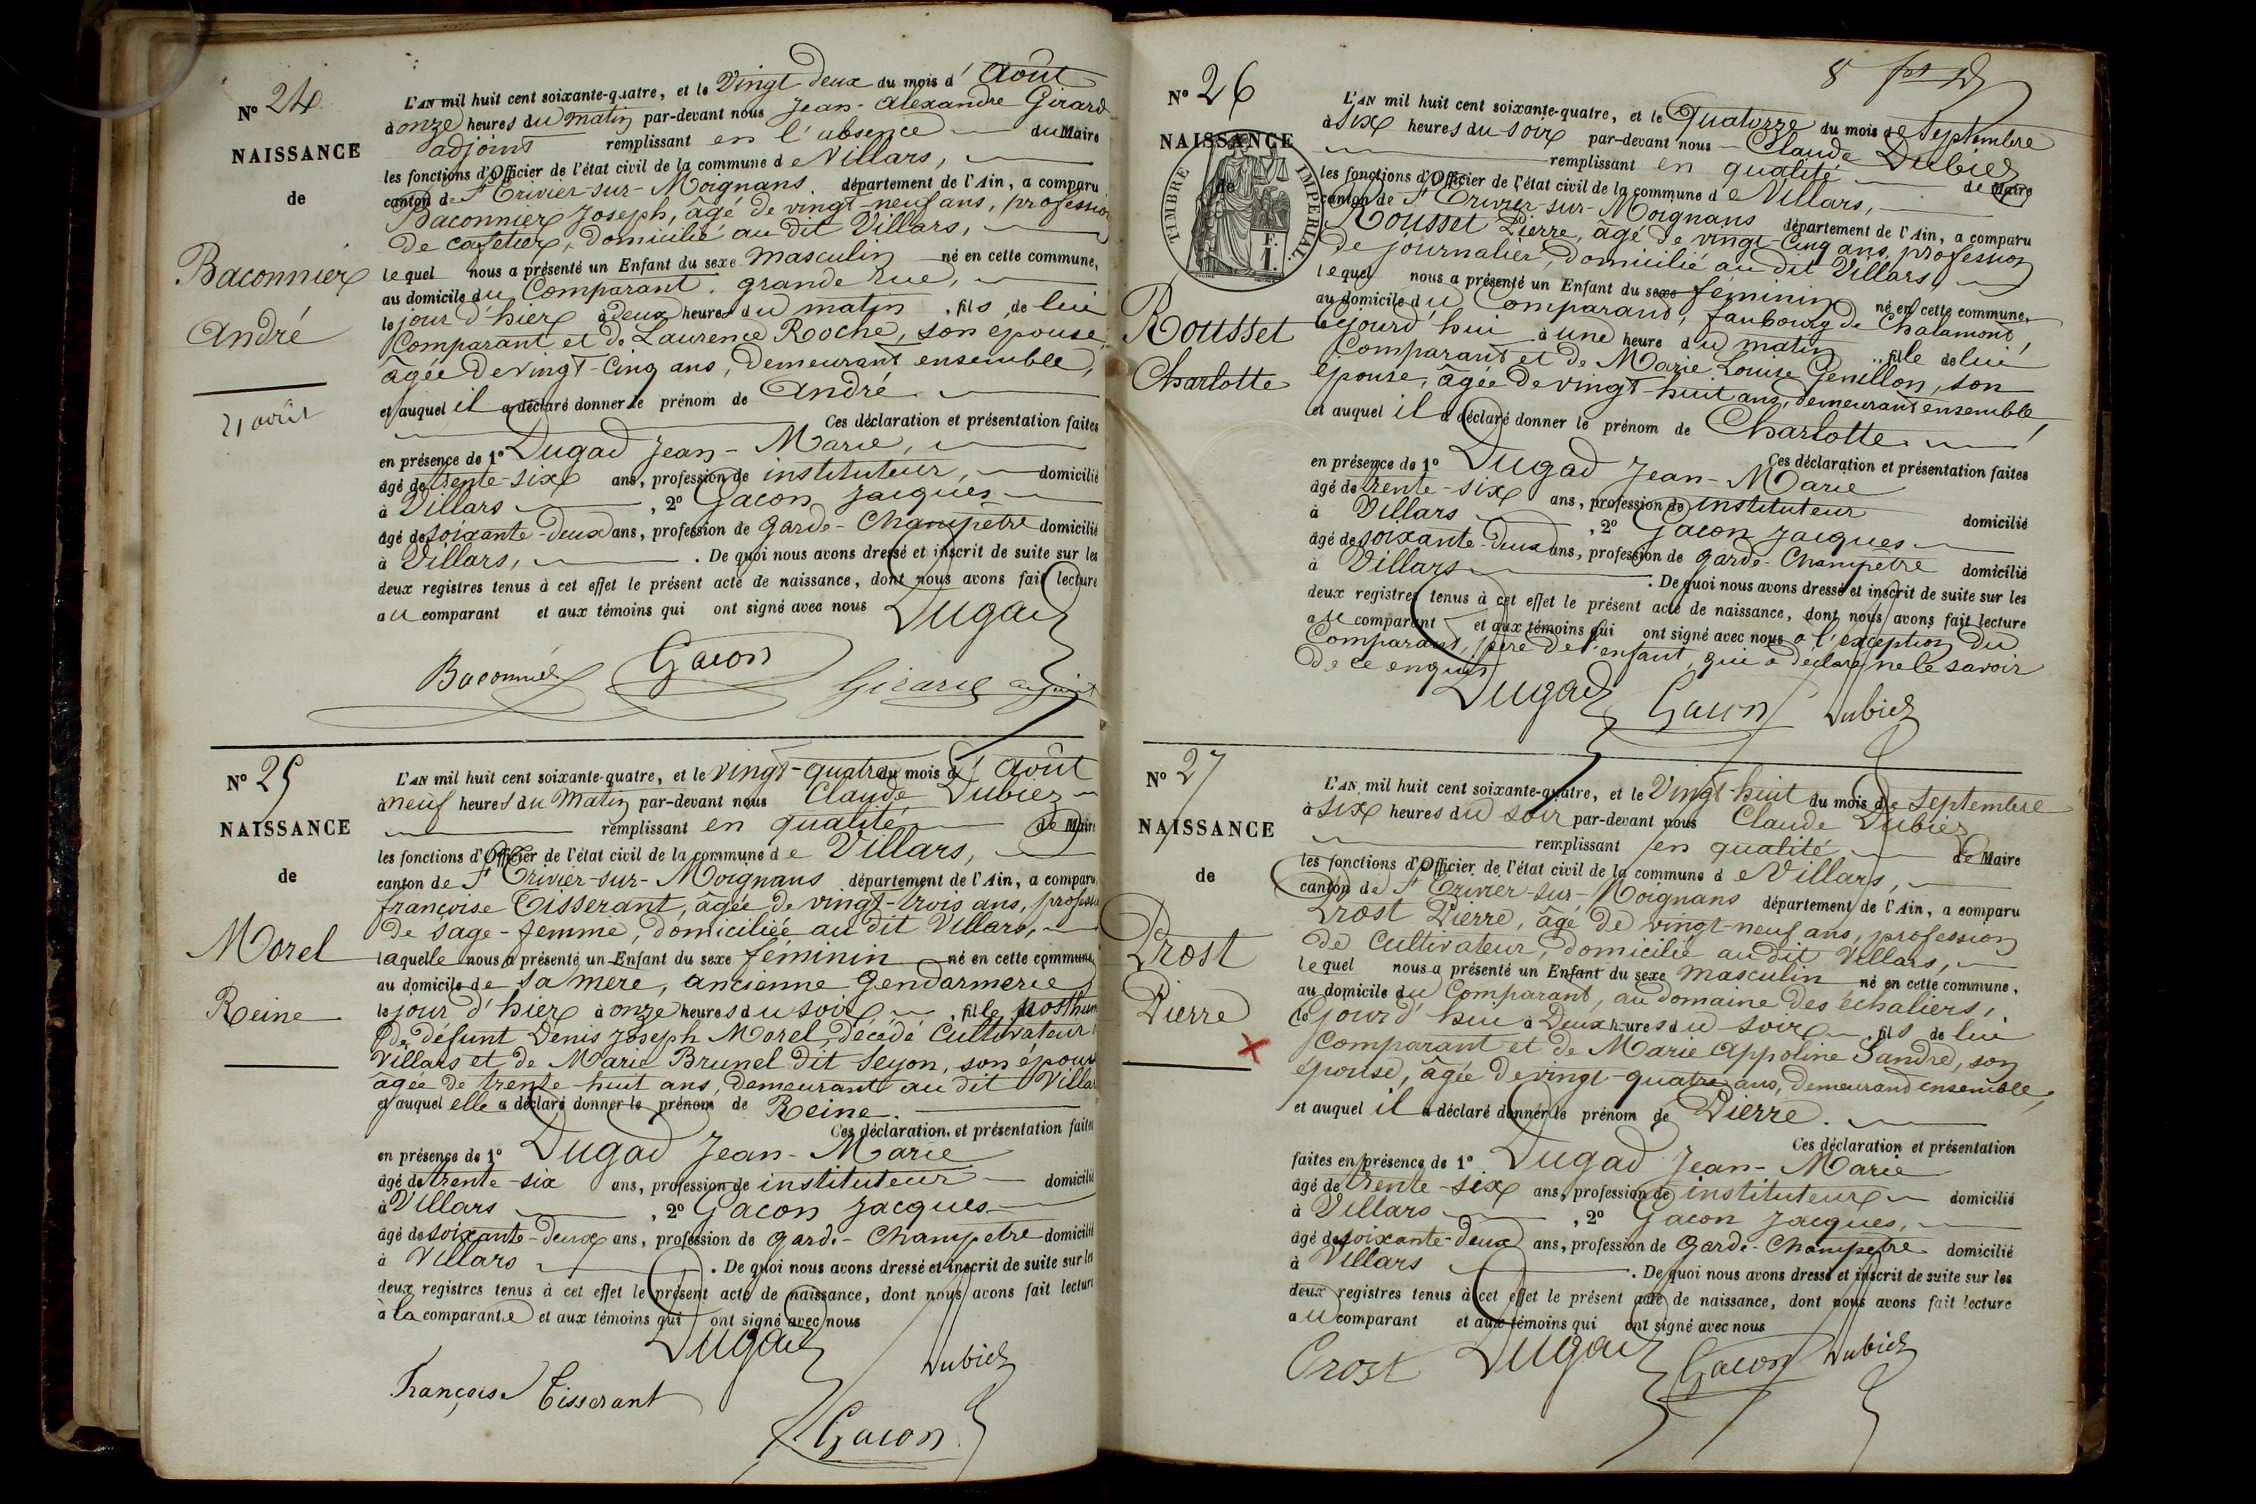 N° 24
NAISSANCE
de
Baconnier
André
21 août
L'AN mil huit cent soixante-quatre, et le Vingt deux du mois d'Août
à onze heures du matin par-devant nous Jean-Alexandre Girard
adjoint remplissant en l'absence du Maire
les fonctions d'Officier de l'état civil de la commune de Villars,
canton de St Trivier-sur-Moignans, département de l'Ain, a comparu
Baconnier Joseph, âgé de vingt-neuf ans, profession
de cafetier, domicilié au dit Villars,
lequel nous a présenté un Enfant du sexe masculin né en cette commune,
au domicile du Comparant, grande rue,
le jour d'hier à deux heures du matin, fils de lui
Comparant et de Laurence Roche, son épouse,
âgée de vingt-cinq ans, demeurant ensemble,
et auquel il a déclaré donner le prénom de André.
Ces déclaration et présentation faites
en présence de 1° Dugad Jean-Marie,
âgé de trente-six ans, profession de instituteur, domicilié
à Villars, 2° Gacon Jacques
âgé de soixante-deux ans, profession de garde-Champêtre domicilié
à Villars, . De quoi nous avons dressé et inscrit de suite sur les
deux registres tenus à cet effet le présent acte de naissance, dont nous avons fait lecture
au comparant et aux témoins qui ont signé avec nous Dugad
Baconnier Gacon Girard adjoint
N° 25
NAISSANCE
de
Morel
Reine
L'AN mil huit cent soixante-quatre, et le vingt-quatre du mois d'Août
à neuf heures du Matin par-devant nous Claude Dubiez
remplissant en qualité de Maire
les fonctions d'Officier de l'état civil de la commune de Villars,
canton de St Trivier-sur-Moignans, département de l'Ain, a comparu
françoise Tisserant, âgée de vingt-trois ans, profession
de sage-femme, domiciliée au dit Villars,
laquelle nous a présenté un Enfant du sexe féminin né en cette commune
au domicile de sa mère, ancienne Gendarmerie
le jour d'hier à onze heures du soir, fille posthume
de défunt Denis Joseph Morel, décédé Cultivateur à
Villars et de Marie Brunel dit Seyon, son épouse
âgée de trente-huit ans, demeurant au dit Villars
et auquel elle a déclaré donner le prénom de Reine.
Ces déclaration et présentation faites
en présence de 1° Dugad Jean-Marie
âgé de trente-six ans, profession de instituteur domicilié
à Villars, 2° Gacon Jacques
âgé de soixante-deux ans, profession de garde-Champêtre domicilié
à Villars . De quoi nous avons dressé et inscrit de suite sur les
deux registres tenus à cet effet le présent acte de naissance, dont nous avons fait lecture
à la comparante et aux témoins qui ont signé avec nous
Dugad Dubiez
Françoise Tisserant
Gacon
8
N° 26
NAISSANCE
de
TIMBRE IMPERIAL
F.
1.
Rousset
Charlotte
L'AN mil huit cent soixante-quatre, et le Quatorze du mois de Septembre
à Six heures du soir par-devant nous Claude Dubiez
remplissant en qualité de Maire
les fonctions d'Officier de l'état civil de la commune de Villars,
canton de St Trivier-sur-Moignans département de l'Ain, a comparu
Rousset Pierre, âgé de vingt-Cinq ans, profession
de journalier, domicilié au dit Villars,
lequel nous a présenté un Enfant du sexe féminin né en cette commune,
au domicile du Comparant, faubourg de Chalamont,
cejourd'hui à une heure du matin, fille de lui
Comparant et de Marie Louise Genillon, son
épouse, âgée de vingt-huit ans, demeurant ensemble,
et auquel il a déclaré donner le prénom de Charlotte.
Ces déclaration et présentation faites
en présence de 1° Dugad Jean-Marie
âgé de trente-six ans, profession de instituteur domicilié
à Villars, 2° Gacon Jacques
âgé de soixante-deux ans, profession de garde-Champêtre domicilié
à Villars . De quoi nous avons dressé et inscrit de suite sur les
deux registres tenus à cet effet le présent acte de naissance, dont nous avons fait lecture
au comparant et aux témoins qui ont signé avec nous à l'exception du
Comparant, père de l'enfant, qui a déclaré ne le savoir
de ce enquis
Dugad Gacon Dubiez
N° 27
NAISSANCE
de
Prost
Pierre
L'AN mil huit cent soixante-quatre, et le Vingt-huit du mois de Septembre
à six heures du soir par-devant nous Claude Dubiez
remplissant en qualité de Maire
les fonctions d'Officier de l'état civil de la commune de Villars,
canton de St Trivier-sur-Moignans département de l'Ain, a comparu
Prost Pierre, âgé de vingt-neuf ans, profession
de Cultivateur, domicilié au dit Villars,
lequel nous a présenté un Enfant du sexe masculin né en cette commune,
au domicile du Comparant, au domaine des échaliers,
cejourd'hui à Deux heures du soir, fils de lui
Comparant et de Marie Appoline Sandre, son
épouse, âgée de vingt-quatre ans, demeurand ensemble,
et auquel il a déclaré donner le prénom de Pierre.
Ces déclaration et présentation
faites en présence de 1° Dugad Jean-Marie
âgé de trente-six ans, profession de instituteur domicilié
à Villars, 2° Gacon Jacques,
âgé de soixante-deux ans, profession de garde-Champêtre domicilié
à Villars . De quoi nous avons dressé et inscrit de suite sur les
deux registres tenus à cet effet le présent acte de naissance, dont nous avons fait lecture
au comparant et aux témoins qui ont signé avec nous
Prost Dugad Gacon Dubiez